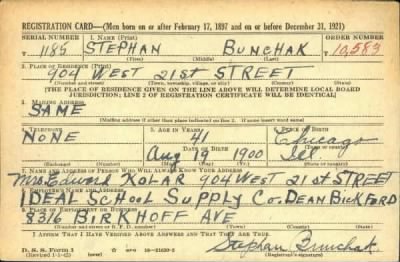 REGISTRATION CARD—(Men born on or after February 17, 1897 and on or before December 31, 1921)
SERIAL NUMBER 1. Name (Print) ORDER NUMBER
1185 STEPHAN BUNCHAK 10,583
(First) (Middle) (Last)
2. Place of Residence (Print)
904 WEST 21ST STREET
(Number and street) (Town, township, village, or city) (County) (State)
[THE PLACE OF RESIDENCE GIVEN ON THE LINE ABOVE WILL DETERMINE LOCAL BOARD
JURISDICTION; LINE 2 OF REGISTRATION CERTIFICATE WILL BE IDENTICAL]
3. Mailing Address
SAME
[Mailing address if other than place indicated on line 2. If same insert word same]
4. Telephone 5. Age in Years 6. Place of Birth
NONE 41 Chicago
Date of Birth (Town or county)
Aug 19 1900 Ill
(Exchange) (Number) (Mo.) (Day) (Yr.) (State or country)
7. Name and Address of Person Who Will Always Know Your Address
Mrs. Edward KOLAR 904 WEST 21ST STREET
8. Employer's Name and Address
IDEAL SCHOOL SUPPLY CO. DEAN BICKFORD
9. Place of Employment or Business
8316 BIRKHOFF AVE
(Number and street or R. F. D. number) (Town) (County) (State)
I Affirm That I Have Verified Above Answers and That They Are True.
D. S. S. Form 1
(Revised 1-1-42) (over)
Stephan Bunchak
(Registrant's signature)